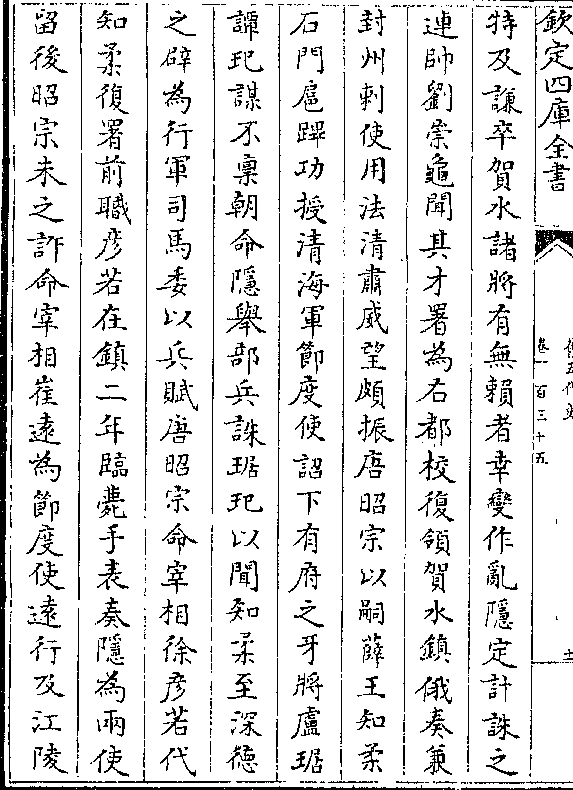 欽定四庫全書
舊五代史
卷一百三十五
十
特及謙卒賀水諸將有無賴者幸變作亂隱定計誅之
連帥劉崇龜聞其才署為右都校復領賀水鎮俄奏兼
封州刺使用法清肅威望頗振唐昭宗以嗣薛王知柔
石門扈蹕功授清海軍節度使詔下有府之牙將盧琚
譚玘謀不稟朝命隱舉部兵誅琚玘以聞知柔至深德
之辟為行軍司馬委以兵賦唐昭宗命宰相徐彦若代
知柔復署前職彦若在鎮二年臨薨手表奏隱為兩使
留後昭宗未之許命宰相崔遠為節度使遠行及江陵